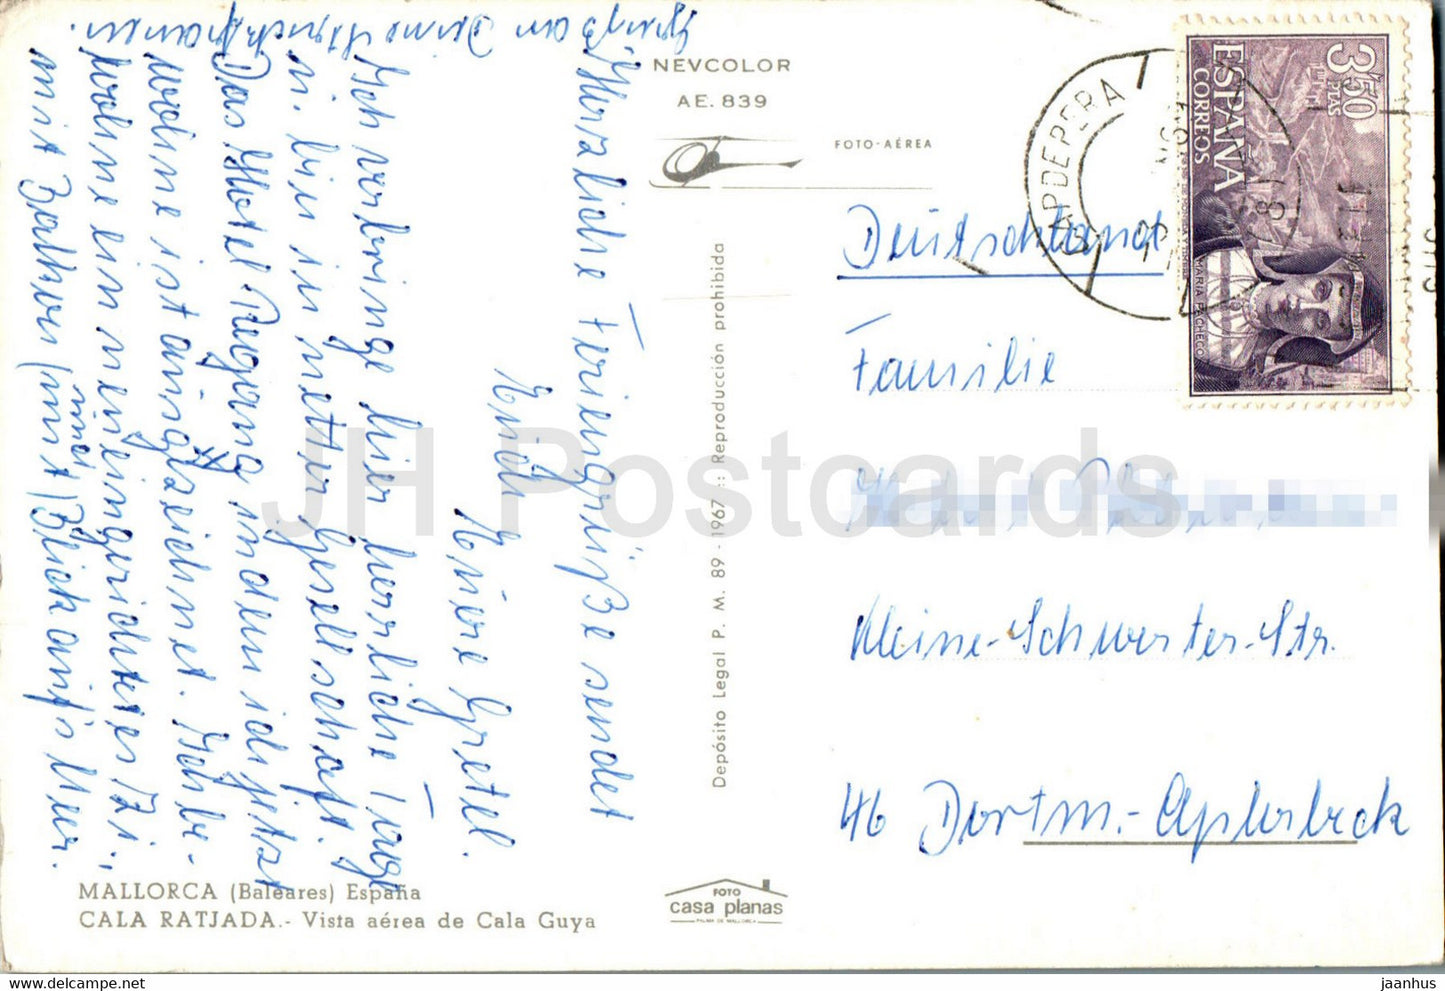 NEVCOLOR
AE. 839
FOTO-AÉREA
Herzliche Feriengrüße sendet
Euch
Eure Gretel.
Ich verbringe hier herrliche Tage
u. bin in netter Gesellschaft.
Das Hotel Regana in dem ich jetzt
wohne ist ausgezeichnet. Ich be-
wohne ein neu eingerichtetes Zi.,
mit Balkon und (mit) Blick auf's Meer.
Depósito Legal P. M. 89 - 1967 :: Reproducción prohibida
CAPDEPERA
3'50 PTAS
ESPAÑA
CORREOS
MARIA PACHECO
Deutschland
Familie
Kleine-Schwerter-Str.
46 Dortm.-Aplerbeck
MALLORCA (Baleares) España
CALA RATJADA.- Vista aérea de Cala Guya
FOTO
casa planas
PALMA DE MALLORCA
JH Postcards
jaanhus